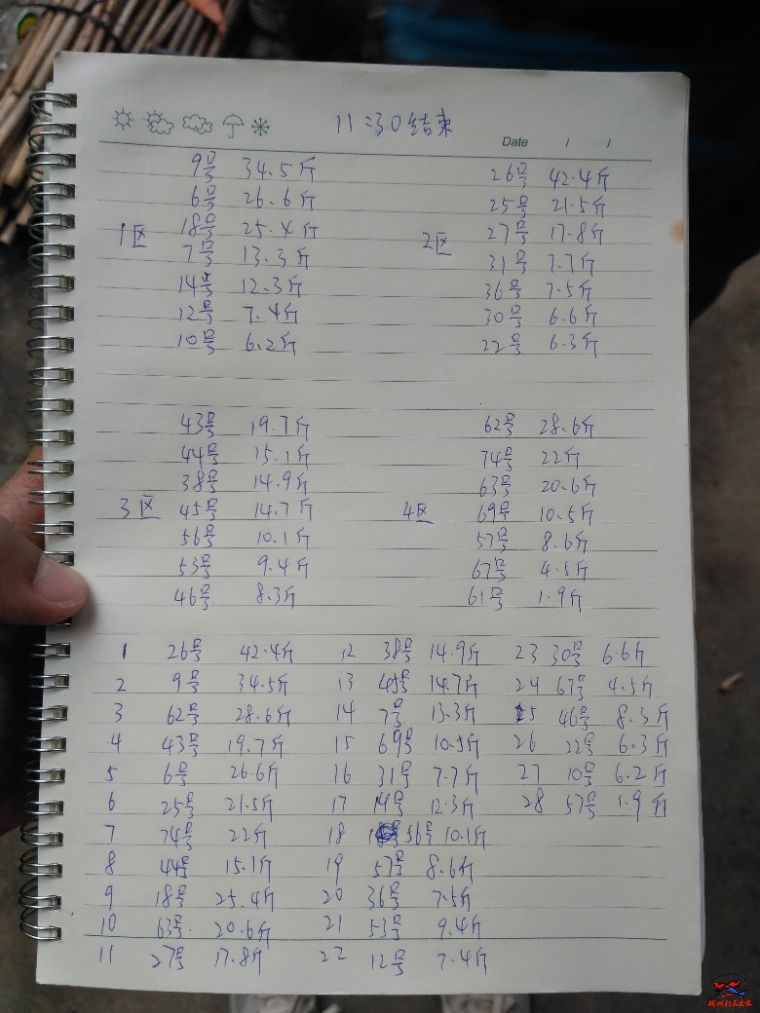 11:30结束
Date / /
9号 34.5斤
6号 26.6斤
1区 18号 25.4斤
7号 13.3斤
14号 12.3斤
12号 7.4斤
10号 6.2斤
26号 42.4斤
25号 21.5斤
2区 27号 17.8斤
31号 7.7斤
36号 7.5斤
30号 6.6斤
22号 6.3斤
43号 19.7斤
44号 15.1斤
38号 14.9斤
3区 45号 14.7斤
56号 10.1斤
53号 9.4斤
46号 8.3斤
62号 28.6斤
74号 22斤
63号 20.6斤
4区 69号 10.5斤
57号 8.6斤
67号 4.5斤
61号 1.9斤
1 26号 42.4斤
2 9号 34.5斤
3 62号 28.6斤
4 43号 19.7斤
5 6号 26.6斤
6 25号 21.5斤
7 74号 22斤
8 44号 15.1斤
9 18号 25.4斤
10 63号 20.6斤
11 27号 17.8斤
12 38号 14.9斤
13 45号 14.7斤
14 7号 13.3斤
15 69号 10.5斤
16 31号 7.7斤
17 14号 12.3斤
18 56号 10.1斤
19 57号 8.6斤
20 36号 7.5斤
21 53号 9.4斤
22 12号 7.4斤
23 30号 6.6斤
24 67号 4.5斤
25 46号 8.3斤
26 22号 6.3斤
27 10号 6.2斤
28 57号 1.9斤